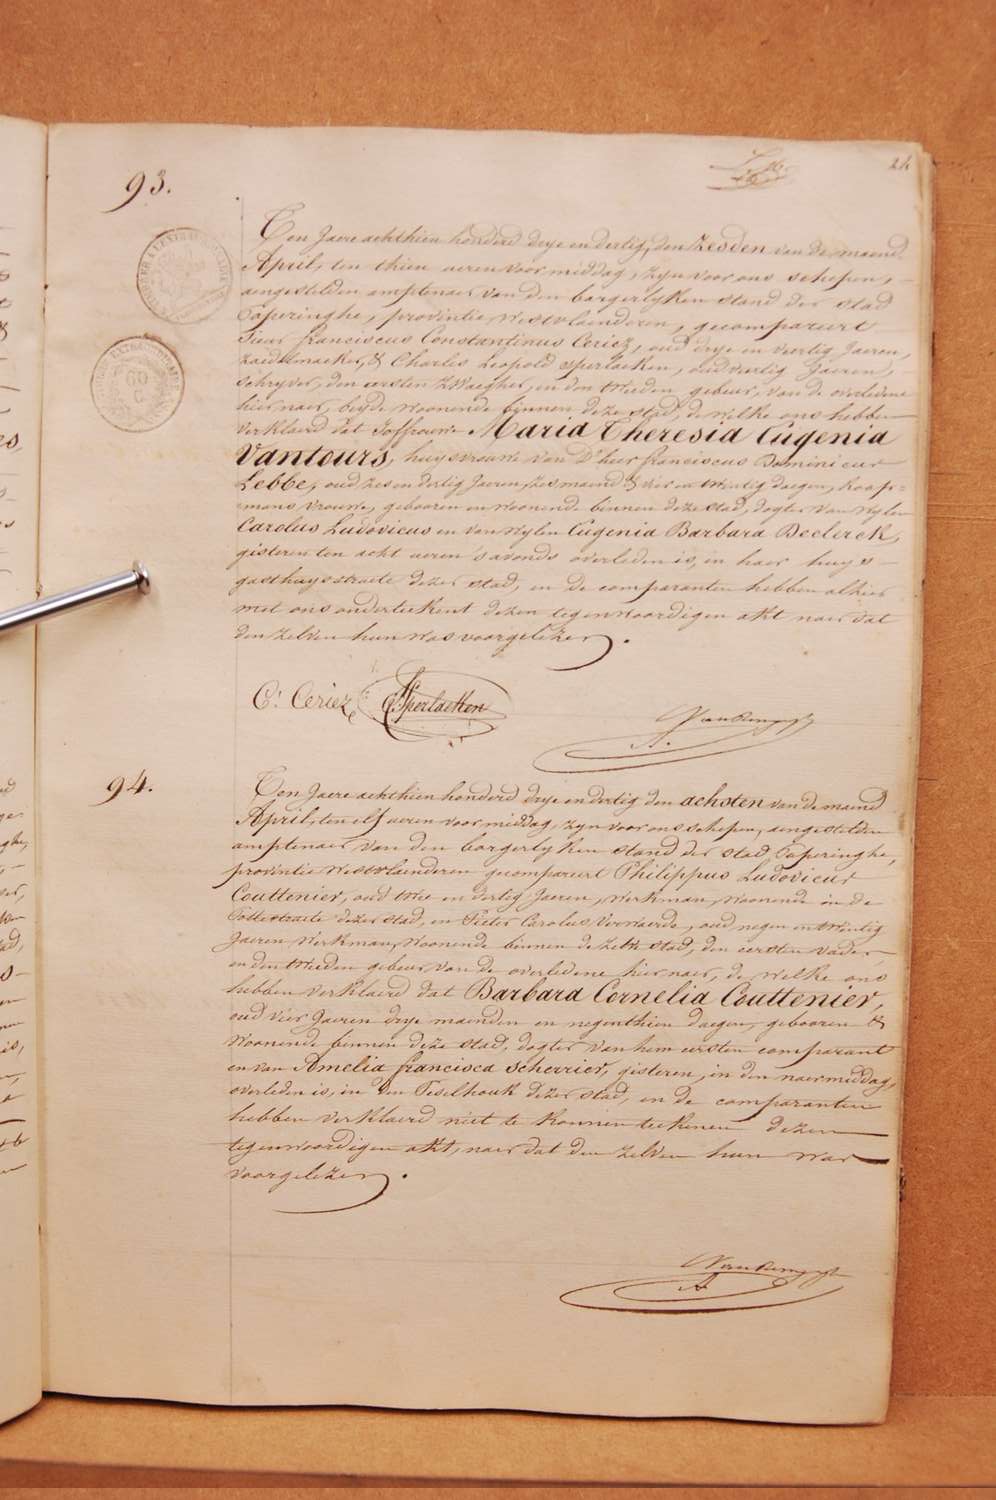 24
93.
Ten Jaere achthien honderd drye en dertig, den zesden van de maend
April, ten thien ueren voormiddag, zyn voor ons schepen,
aengestelden amptenaer van den borgerlyken stand der stad
Poperinghe, provintie Westvlaenderen, gecompareert
Sieur franciscus Constantinus Ceriez, oud drye en veertig Jaeren,
zaedelmaeker, & Charles Leopold Sperlaeken, oud veertig Jaeren,
schryver, den eersten zwaegher, en den tweeden gebeur, van de overledene
hier naer, beyde woonende binnen deze stad, de welke ons hebben
verklaerd dat Joffrouwe Maria Theresia Eugenia
Vantours, huysvrouwe van D'heer franciscus Dominicus
Lebbe, oud zes en dertig Jaeren, zes maend & vier en twintig daegen, koop-
mans vrouwe, gebooren en woonende binnen deze stad, dogter van wylen
Carolus Ludovicus en van wylen Eugenia Barbara Declerck,
gisteren ten acht ueren 's avonds overleden is, in haer huys
gasthuysstraete dezer stad, en de comparanten hebben alhier
met ons onderteekent dezen tegenwoordigen akt naer dat
den zelven hun was voorgelezen.
C. Ceriez Sperlaeken
94.
Ten Jaere achthien honderd drye en dertig den achsten van de maend
April, ten elf ueren voormiddag, zyn voor ons schepen, aengestelden
amptenaer van den borgerlyken stand der stad Poperinghe,
provintie Westvlaenderen gecompareert Philippus Ludovicus
Couttenier, oud twee en dertig Jaeren, werkman, woonende in de
Pottestraete dezer stad, en Pieter Carolus Verwaerde, oud negen en twintig
Jaeren werkman, woonende binnen dezelve stad, den eersten vader,
en den tweeden gebeur, van de overledene hier naer, de welke ons
hebben verklaerd dat Barbara Cornelia Couttenier,
oud vier Jaeren drye maenden en negenthien daegen, gebooren &
woonende binnen deze stad, dogter van hem eersten comparant
en van Amelia francisca Scherrier, gisteren, in den naermiddag,
overleden is, in den Peselhouk dezer stad, en de comparanten
hebben verklaerd niet te konnen teekenen dezen
tegenwoordigen akt, naer dat den zelven hun was
voorgelezen.